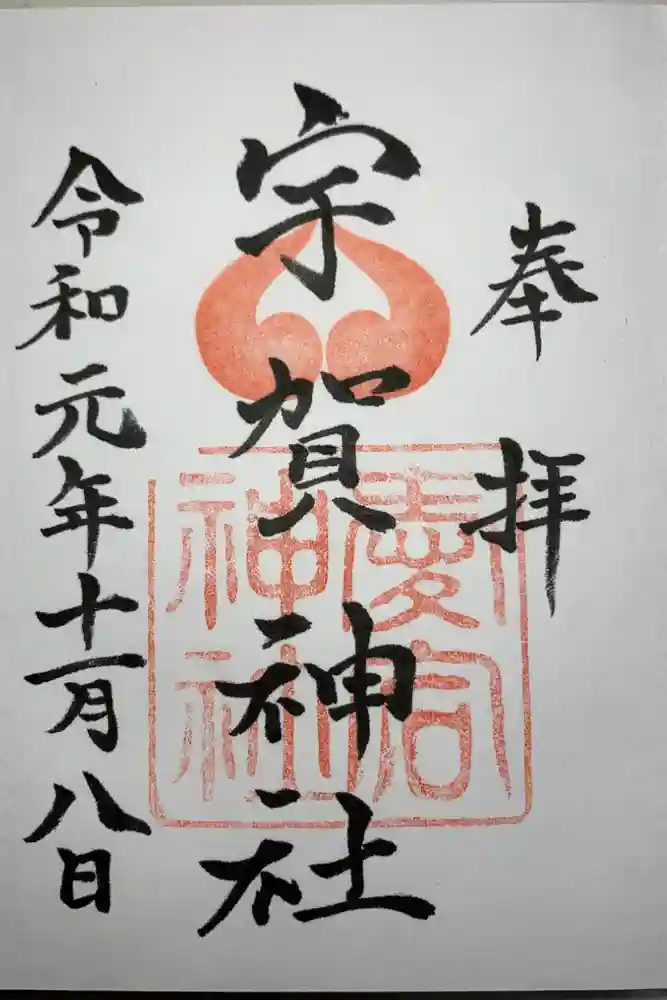 奉拝
宇賀神社
令和元年十一月八日